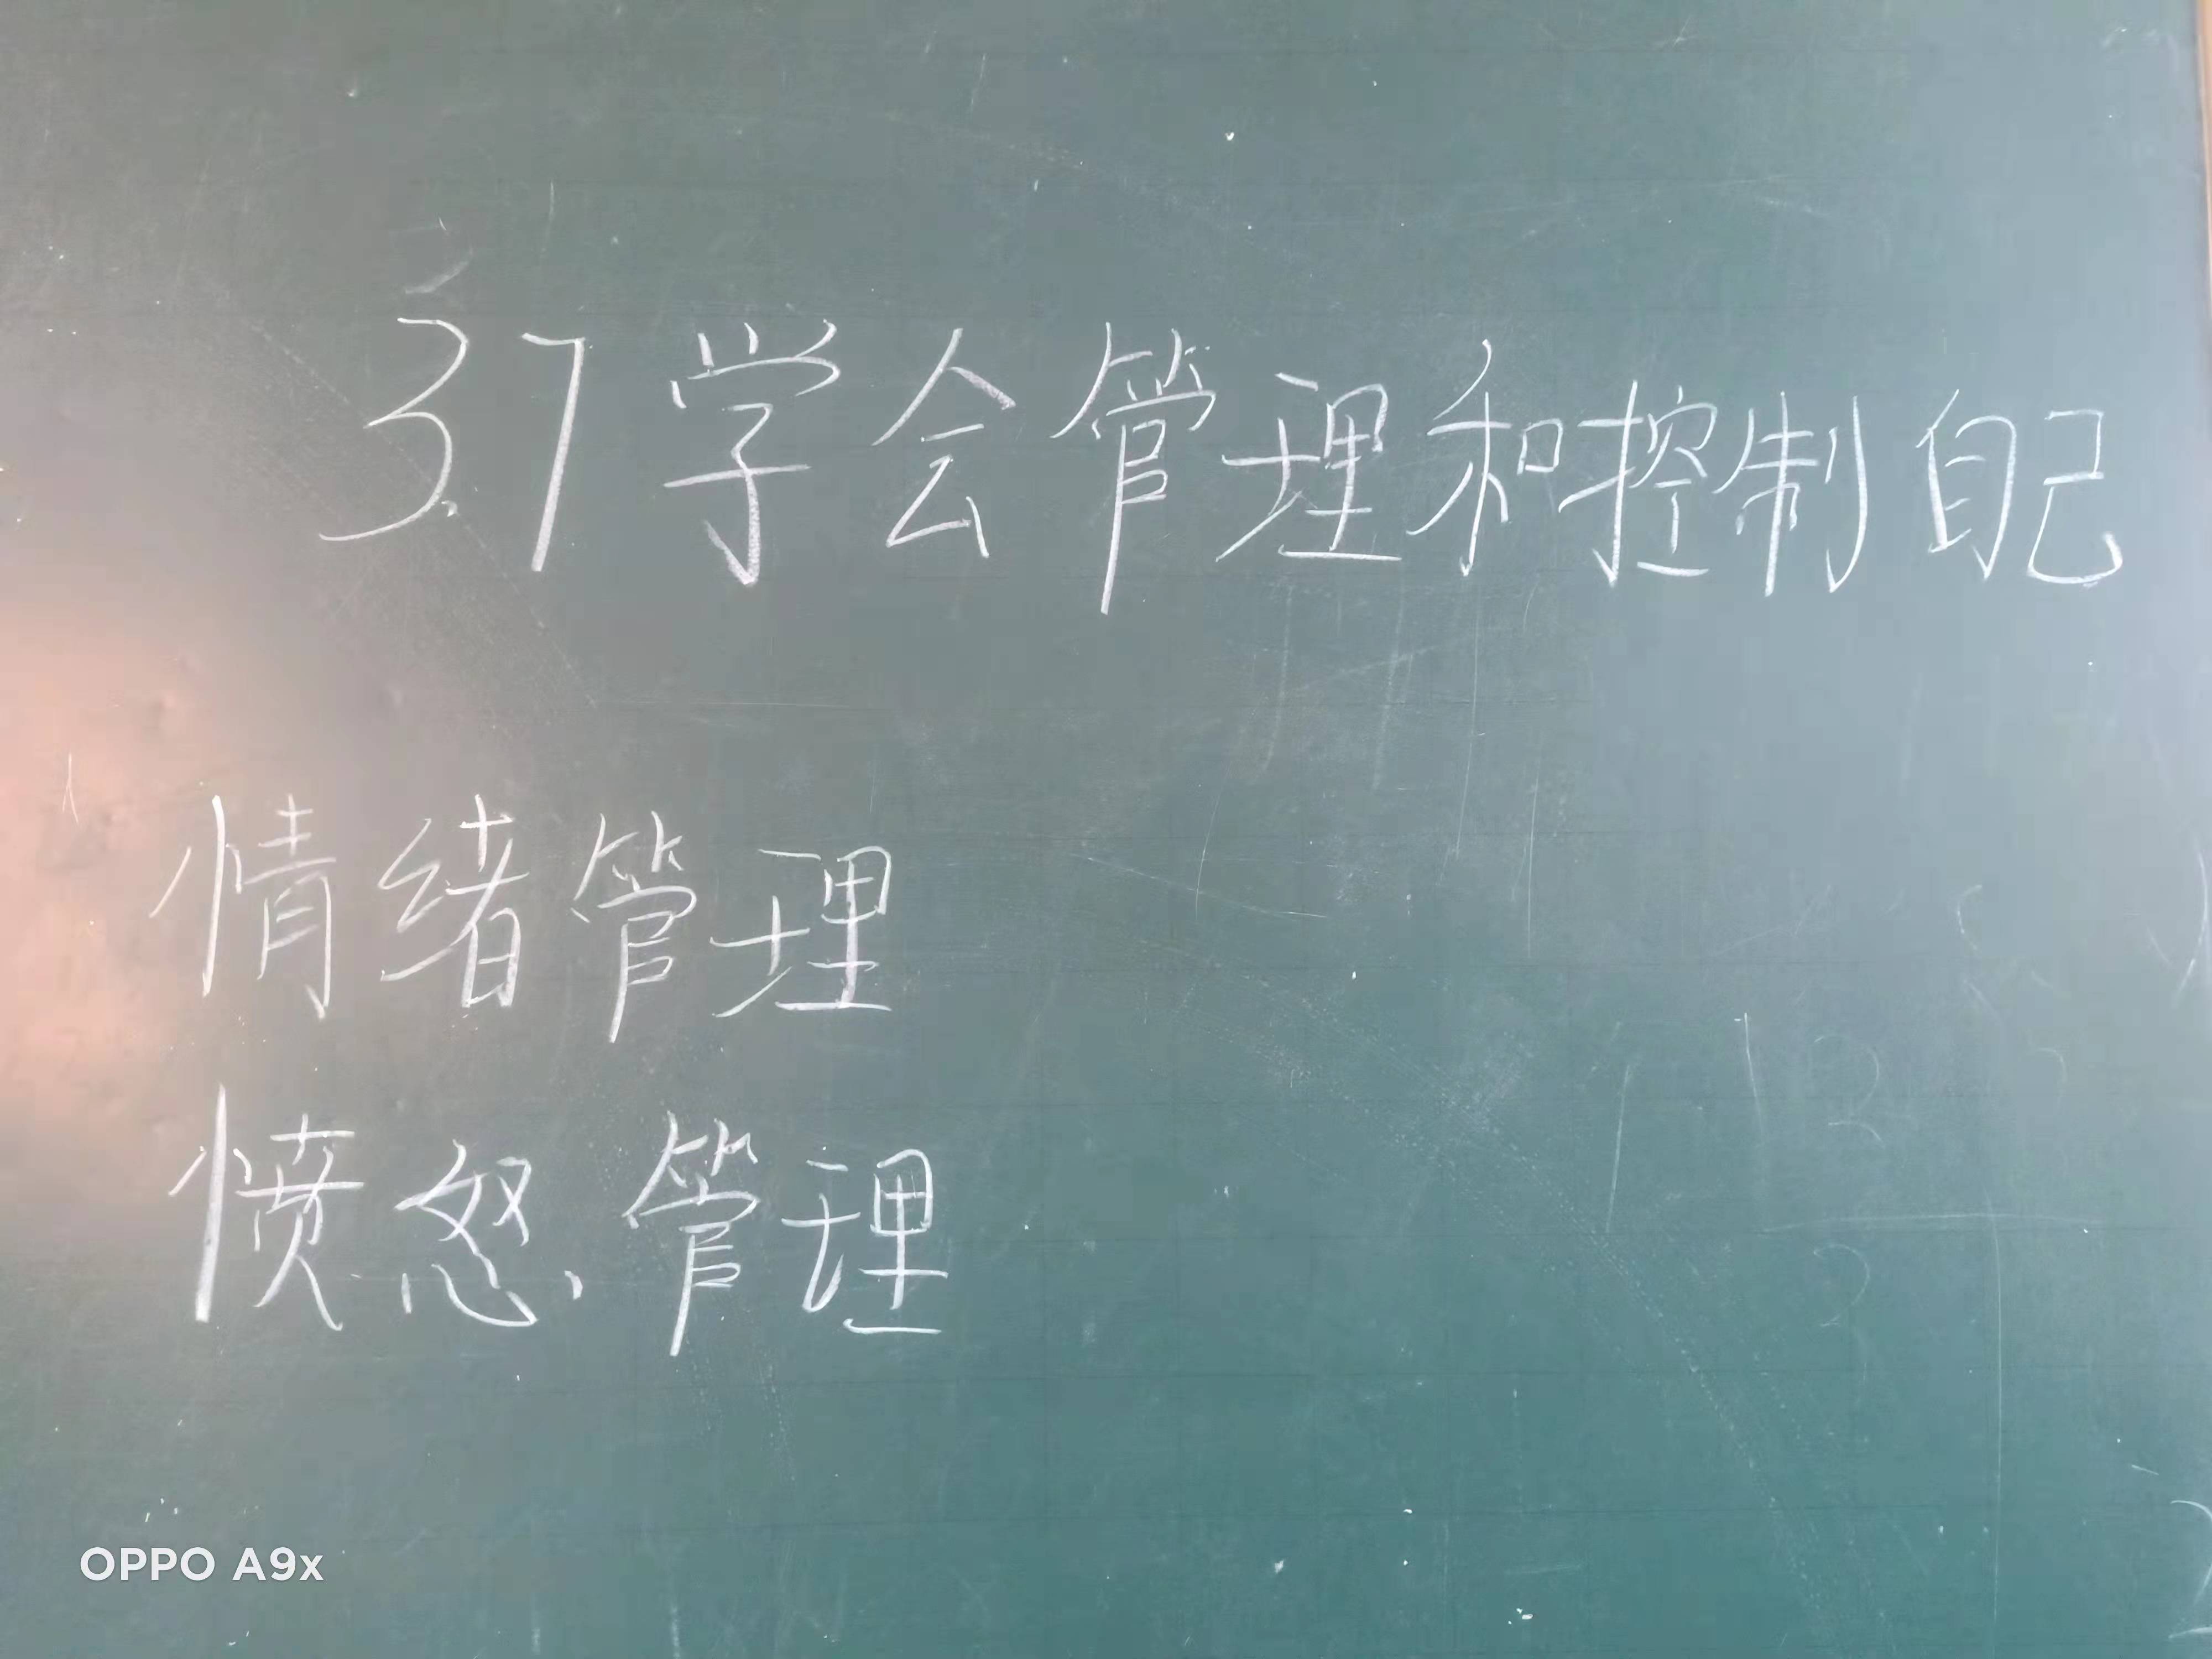 3.7学会管理和控制自己
情绪管理
愤怒管理
OPPO A9x